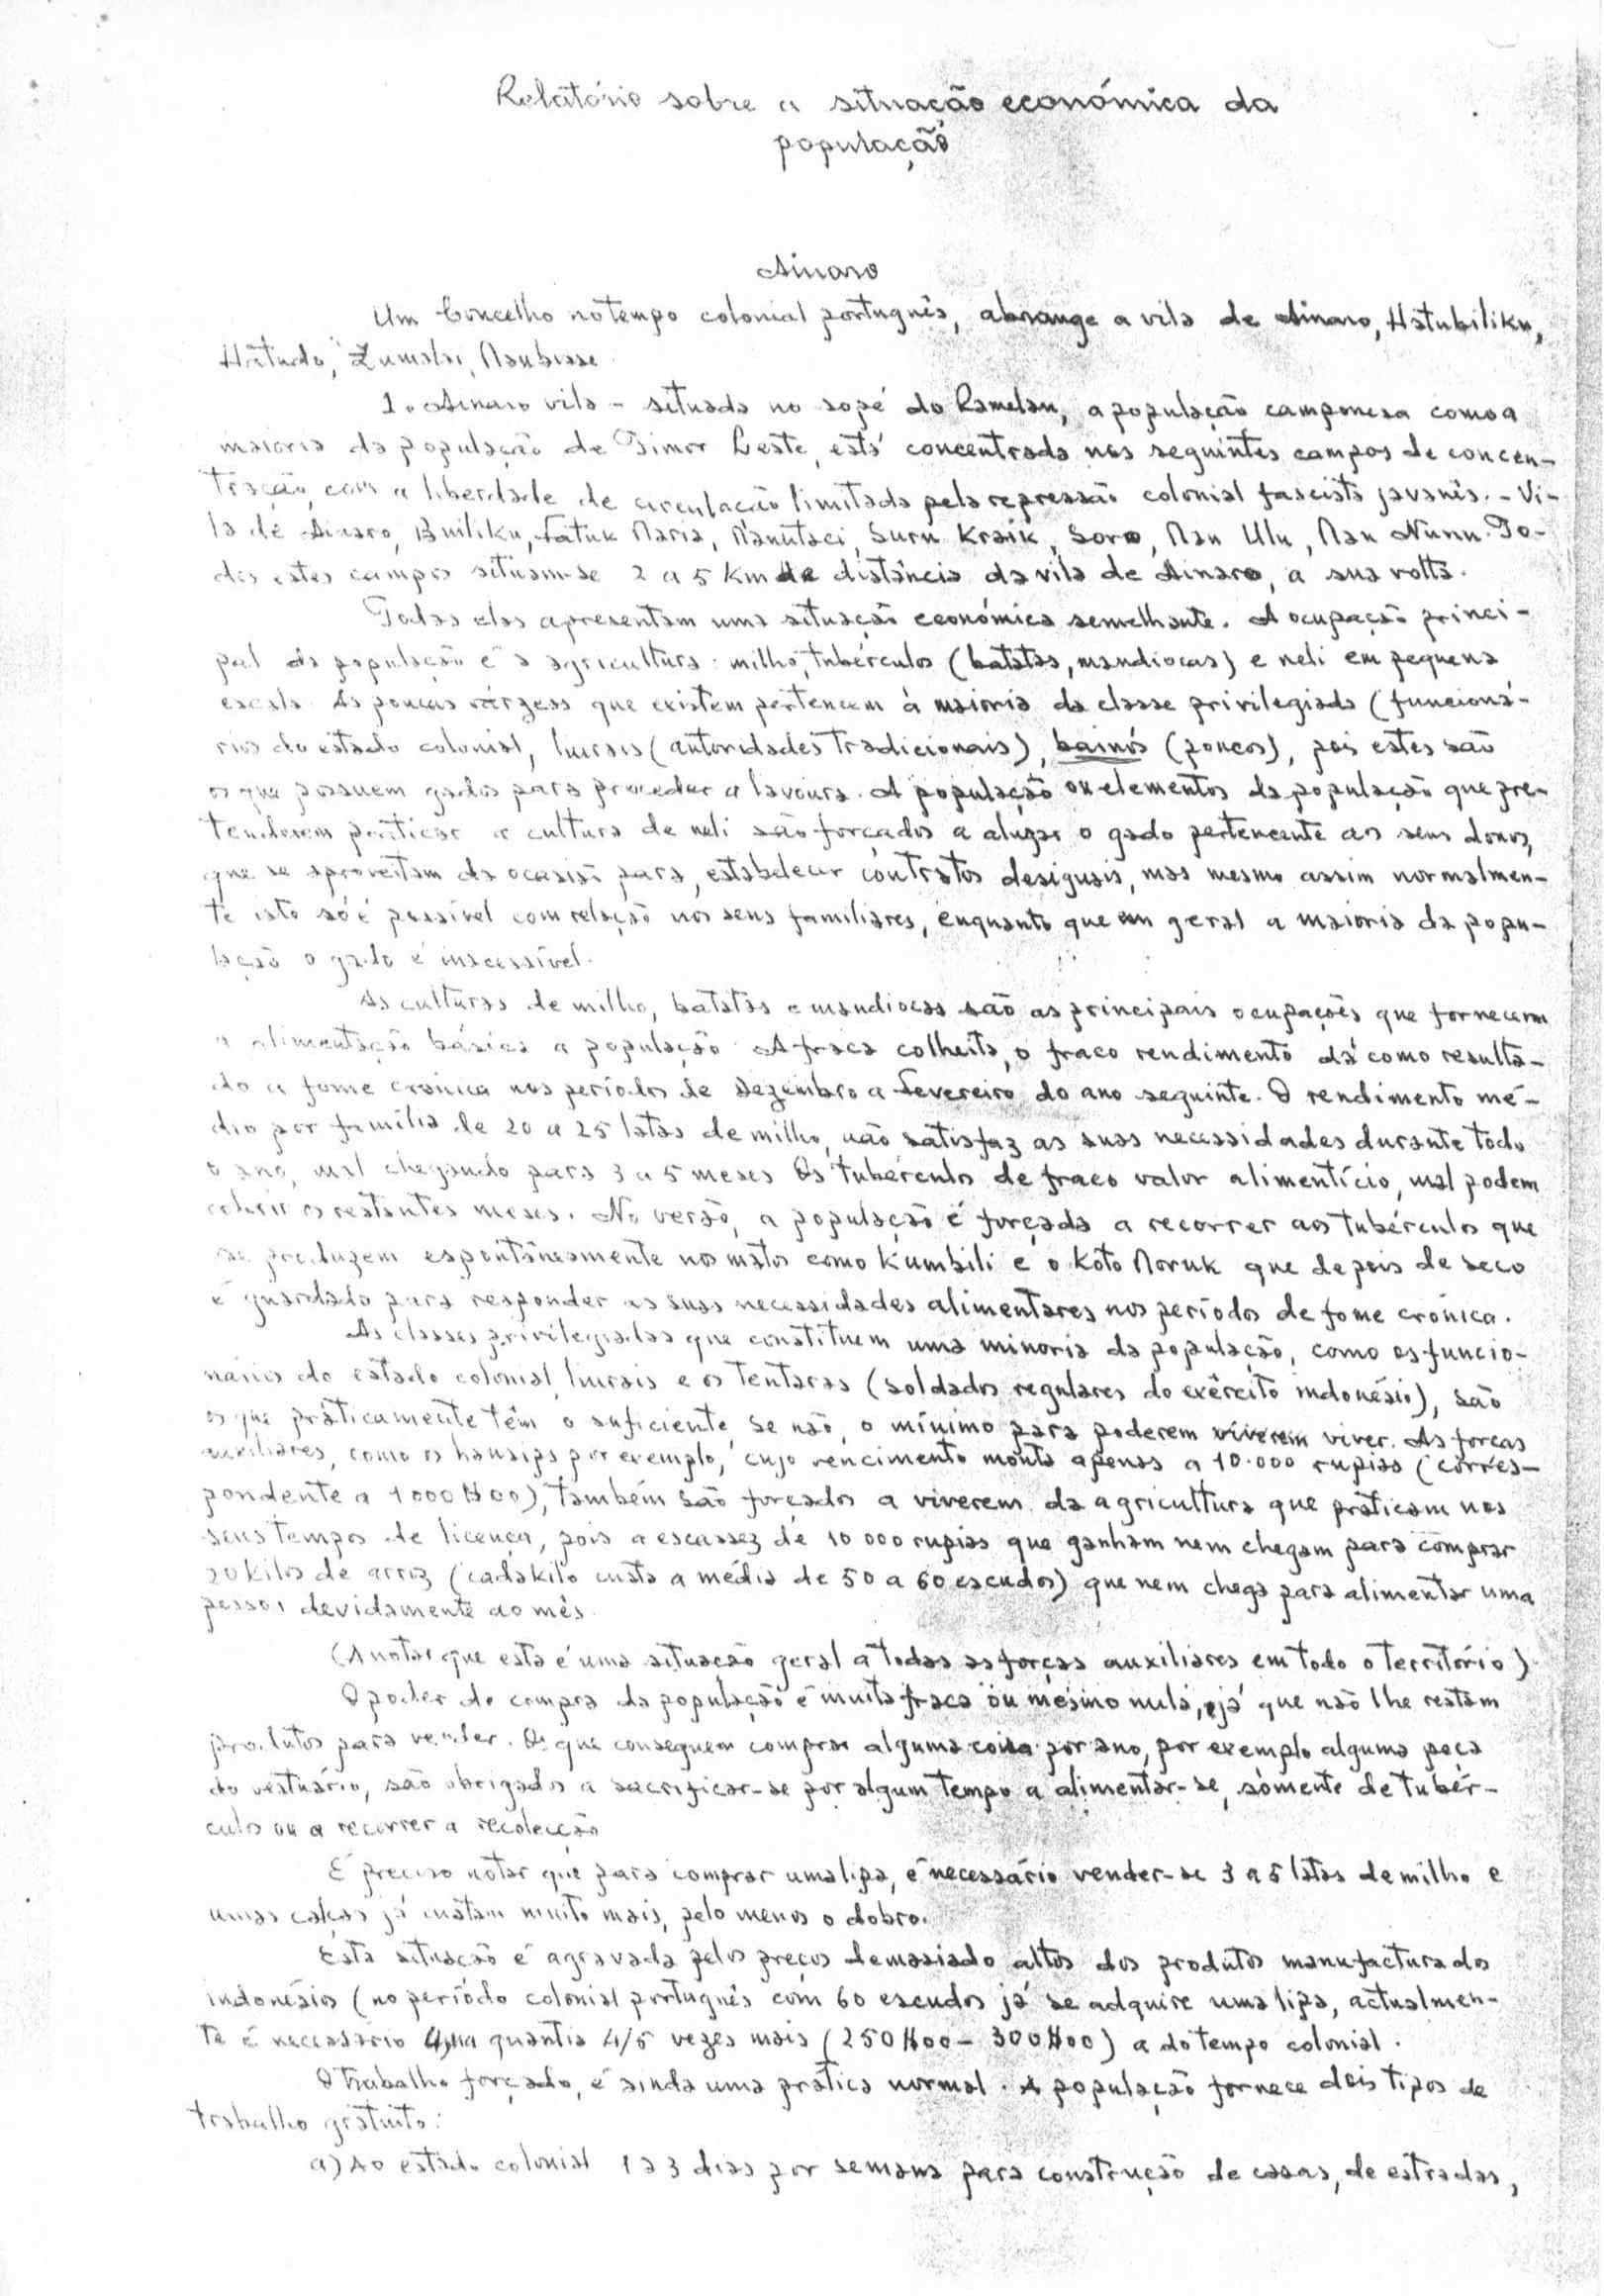 Relatório sobre a situação económica da
população
Ainaro
Um Concelho no tempo colonial português, abrange a vila de Ainaro, Hatubiliku,
Hatudo, Zumalai, Maubisse
1. Ainaro vila - situada no sopé do Ramelau, a população camponesa como a
maioria da população de Timor Leste, está concentrada nos seguintes campos de concen-
tração, com a liberdade de circulação limitada pela repressão colonial fascista javanês. - Vi-
la de Ainaro, Builiku, Fatuk Maria, Manutaci, Suru Kraik, Soro, Mau Ulu, Mau Nunu. To-
dos estes campos situam-se 2 a 5 Km de distância da vila de Ainaro, a sua volta.
Todas elas apresentam uma situação económica semelhante. A ocupação princi-
pal da população é a agricultura: milho, tubérculos (batatas, mandiocas) e neli em pequena
escala. As poucas várzeas que existem pertencem à maioria da classe privilegiada (funcioná-
rios do estado colonial, liurais (autoridades tradicionais), bainós (poucos), pois estes são
os que possuem gados para proceder a lavoura. A população ou elementos da população que pre-
tenderem praticar a cultura de neli são forçados a alugar o gado pertencente aos seus donos,
que se aproveitam da ocasião para, estabelecer contratos desiguais, mas mesmo assim normalmen-
te isto só é possível com relação nos seus familiares, enquanto que em geral a maioria da popu-
lação o gado é inacessível.
As culturas de milho, batatas e mandiocas são as principais ocupações que fornecem
a alimentação básica a população. A fraca colheita, o fraco rendimento dá como resulta-
do a fome crónica nos períodos de Dezembro a Fevereiro do ano seguinte. O rendimento mé-
dio por família de 20 a 25 latas de milho, não satisfaz as suas necessidades durante todo
o ano, mal chegando para 3 a 5 meses. Os tubérculos de fraco valor alimentício, mal podem
cobrir os restantes meses. No verão, a população é forçada a recorrer aos tubérculos que
se produzem espontâneamente nos matos como Kumbili e o Koto Moruk que depois de seco
é guardado para responder as suas necessidades alimentares nos períodos de fome crónica.
As classes privilegiadas que constituem uma minoria da população, como os funcio-
nários do estado colonial, liurais e os tentaras (soldados regulares do exército indonésio), são
os que práticamente têm o suficiente, se não, o mínimo para poderem viverem viver. As forças
auxiliares, como os hansips por exemplo, cujo vencimento monta apenas a 10.000 rupias (corres-
pondente a 1000$00), também são forçados a viverem da agricultura que praticam nos
seus tempos de licença, pois a escassez de 10 000 rupias que ganham nem chegam para comprar
20 kilos de arroz (cada kilo custa a média de 50 a 60 escudos) que nem chega para alimentar uma
pessoa devidamente ao mês.
(A notar que esta é uma situação geral a todas as forças auxiliares em todo o território).
O poder de compra da população é muita fraca ou mesmo nula, já que não lhe restam
produtos para vender. Os que conseguem comprar alguma coisa por ano, por exemplo alguma peça
do vestuário, são obrigados a sacrificar-se por algum tempo a alimentar-se, sòmente de tubér-
culos ou a recorrer a recolecção
É preciso notar que para comprar uma lipa, é necessário vender-se 3 a 5 latas de milho e
umas calças já custam muito mais, pelo menos o dobro.
Esta situação é agravada pelos preços demasiado altos dos produtos manufacturados
indonésios (no período colonial português com 60 escudos já se adquire uma lipa, actualmen-
te é necessário uma quantia 4/5 vezes mais (250$00 - 300$00) a do tempo colonial.
O trabalho forçado, é ainda uma prática normal. A população fornece dois tipos de
trabalho gratuito:
a) Ao estado colonial 1 a 3 dias por semana para construção de casas, de estradas,